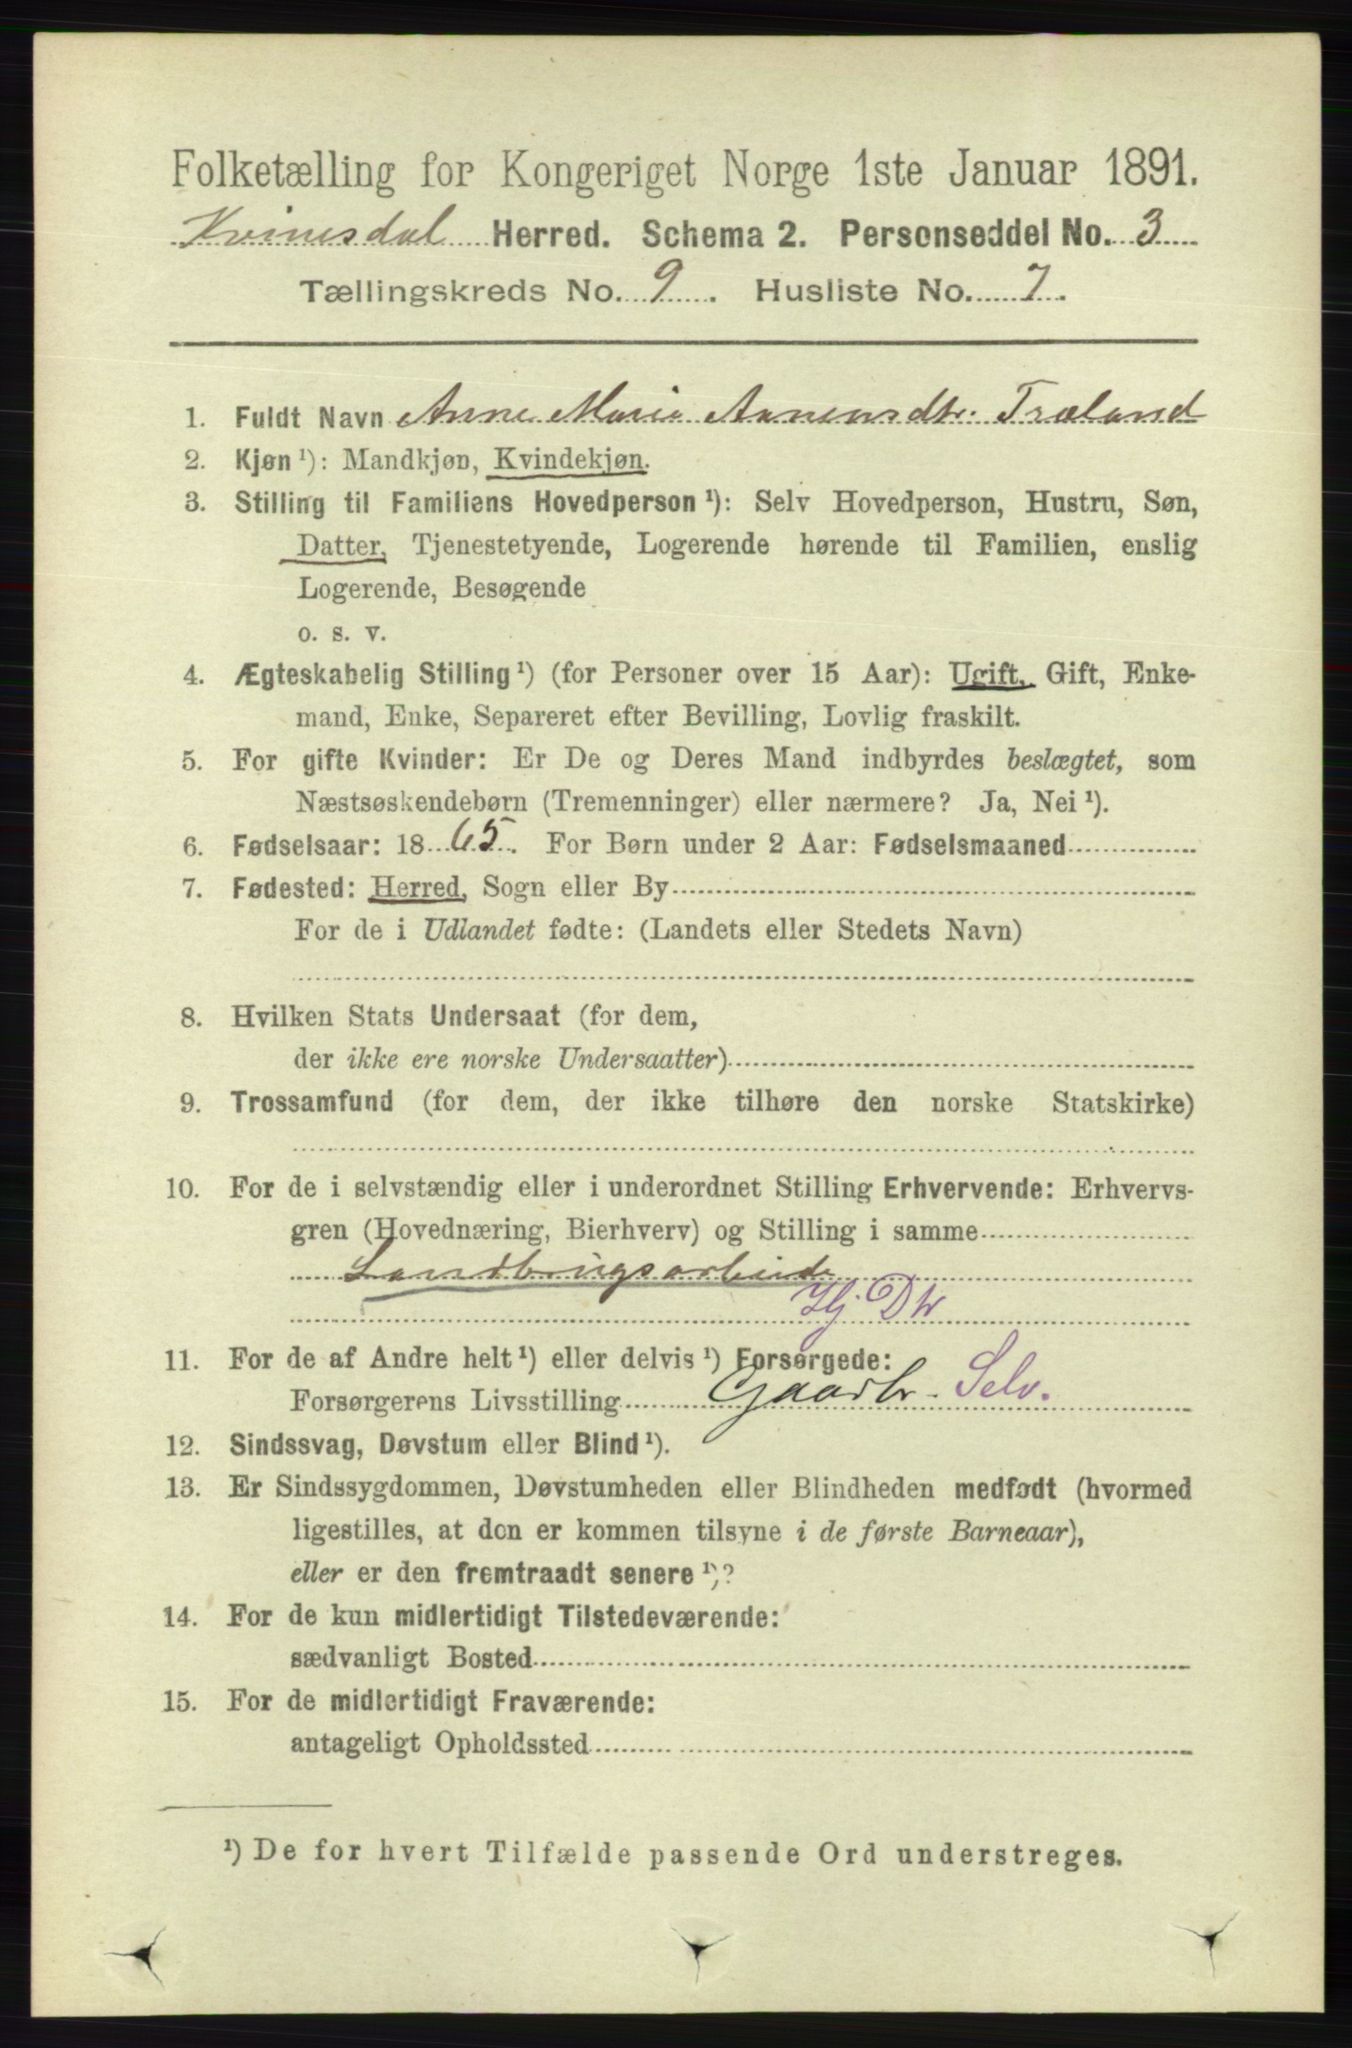 Folketælling for Kongeriget Norge 1ste Januar 1891.
Kvinesdal Herred. Schema 2. Personseddel No. 3
Tællingskreds No. 9. Husliste No. 7.
1. Fuldt Navn Anne Marie Aanensdtr. Træland
2. Kjøn ¹): Mandkjøn, Kvindekjøn.
3. Stilling til Familiens Hovedperson ¹): Selv Hovedperson, Hustru, Søn,
Datter, Tjenestetyende, Logerende hørende til Familien, enslig
Logerende, Besøgende
o. s. v.
4. Ægteskabelig Stilling ¹) (for Personer over 15 Aar): Ugift, Gift, Enke-
mand, Enke, Separeret efter Bevilling, Lovlig fraskilt.
5. For gifte Kvinder: Er De og Deres Mand indbyrdes beslægtet, som
Næstsøskendebørn (Tremenninger) eller nærmere? Ja, Nei ¹).
6. Fødselsaar: 1865. For Børn under 2 Aar: Fødselsmaaned
7. Fødested: Herred, Sogn eller By
For de i Udlandet fødte: (Landets eller Stedets Navn)
8. Hvilken Stats Undersaat (for dem,
der ikke ere norske Undersaatter)
9. Trossamfund (for dem, der ikke tilhøre den norske Statskirke)
10. For de i selvstændig eller i underordnet Stilling Erhvervende: Erhvervs-
gren (Hovednæring, Bierhverv) og Stilling i samme
Landbrugsarbeide
Hj. Dtr
11. For de af Andre helt ¹) eller delvis ¹) Forsørgede:
Forsørgerens Livsstilling Gaardbr. Selv.
12. Sindssvag, Døvstum eller Blind ¹).
13. Er Sindssygdommen, Døvstumheden eller Blindheden medfødt (hvormed
ligestilles, at den er kommen tilsyne i de første Barneaar),
eller er den fremtraadt senere ¹)?
14. For de kun midlertidigt Tilstedeværende:
sædvanligt Bosted
15. For de midlertidigt Fraværende:
antageligt Opholdssted
¹) De for hvert Tilfælde passende Ord understreges.